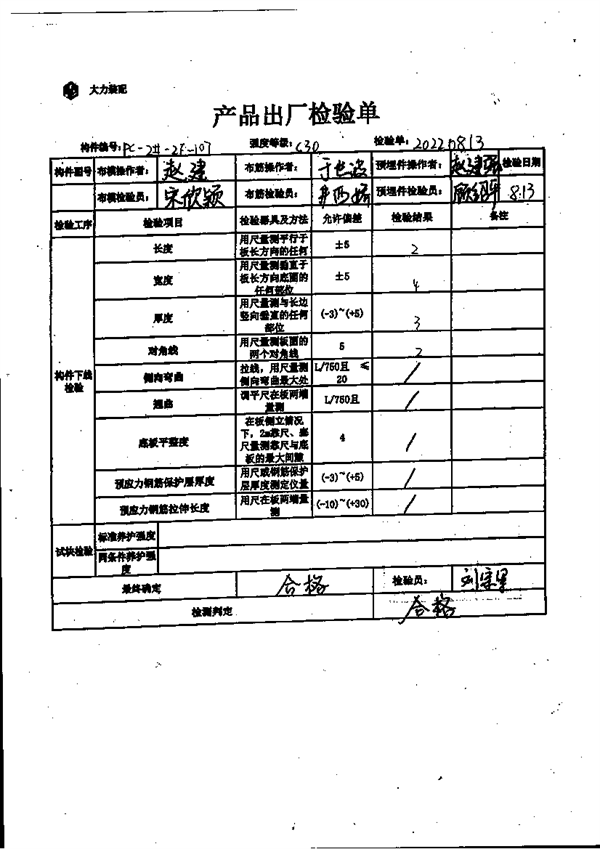 大力装配
产品出厂检验单
构件编号:PC-2#-2F-107 强度等级:C30 检验单:20220813
构件图号 布模操作者: 赵建 布筋操作者: 预埋件操作者: 赵建强 检验日期
布模检验员: 宋欣颖 布筋检验员: 预埋件检验员: 8.13
检验工序 检验项目 检验器具及方法 允许偏差 检验结果 备注
构件下线检验
长度 用尺量测平行于板长方向的任何 ±5 2
宽度 用尺量测垂直于板长方向底面的任何部位 ±5 4
厚度 用尺量测与长边竖向垂直的任何部位 (-3)~(+5) 3
对角线 用尺量测板面的两个对角线 5 2
侧向弯曲 拉线,用尺量测侧向弯曲最大处 L/750且 ≤20 /
翘曲 调平尺在板两端量测 L/750且 /
底板平整度 在板侧立情况下,2m靠尺、塞尺量测靠尺与底板的最大间隙 4 /
预应力钢筋保护层厚度 用尺或钢筋保护层厚度测定仪量 (-3)~(+5) /
预应力钢筋拉伸长度 用尺在板两端量测 (-10)~(+30) /
试块检验 标准养护强度
同条件养护强度
最终确定 合格 检验员:
检测判定 合格